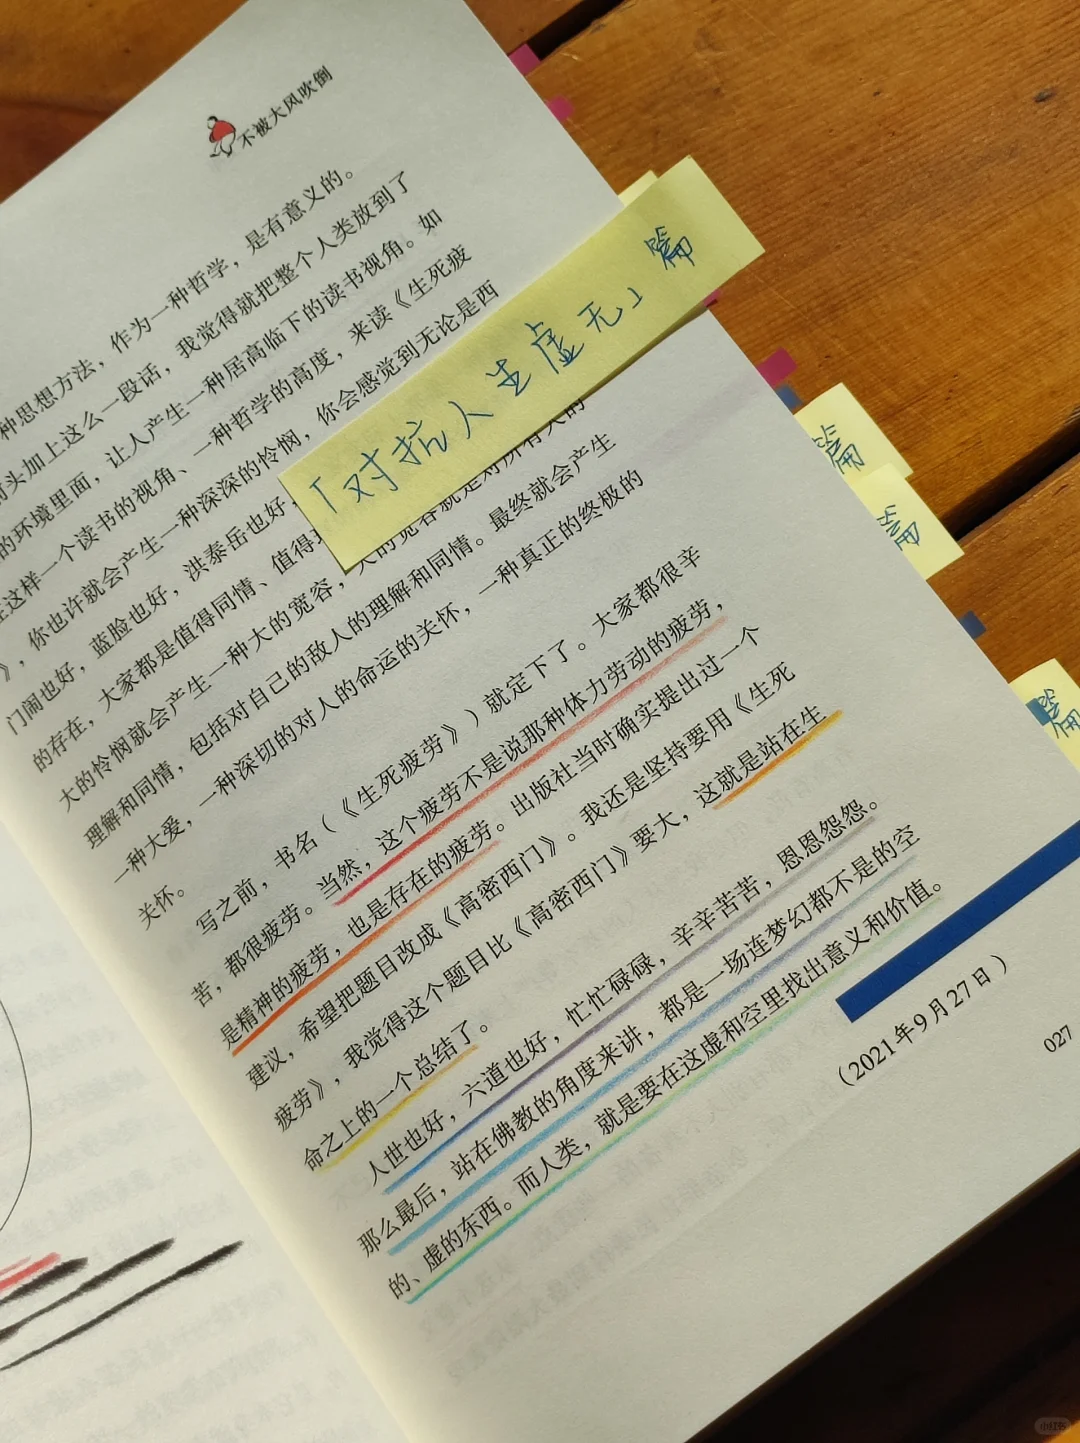 不被大风吹倒
种思想方法，作为一种哲学，是有意义的。
头加上这么一段话，我觉得就把整个人类放到了
的环境里面，让人产生一种居高临下的读书视角。如
在这样一个读书的视角、一种哲学的高度，来读《生死疲
》，你也许就会产生一种深深的怜悯，你会感觉到无论是西
门闹也好，蓝脸也好，洪泰岳也好，
的存在，大家都是值得同情、值得
大的怜悯就会产生一种大的宽容，大的宽容就是对所有人的
理解和同情，包括对自己的敌人的理解和同情。最终就会产生
一种大爱，一种深切的对人的命运的关怀，一种真正的终极的
关怀。
写之前，书名（《生死疲劳》）就定下了。大家都很辛
苦，都很疲劳。当然，这个疲劳不是说那种体力劳动的疲劳，
是精神的疲劳，也是存在的疲劳。出版社当时确实提出过一个
建议，希望把题目改成《高密西门》。我还是坚持要用《生死
疲劳》，我觉得这个题目比《高密西门》要大，这就是站在生
命之上的一个总结了。
人世也好，六道也好，忙忙碌碌，辛辛苦苦，恩恩怨怨。
那么最后，站在佛教的角度来讲，都是一场连梦幻都不是的空
的、虚的东西。而人类，就是要在这虚和空里找出意义和价值。
（2021年9月27日）
027
「对抗人生虚无」篇
篇
篇
篇
小红书